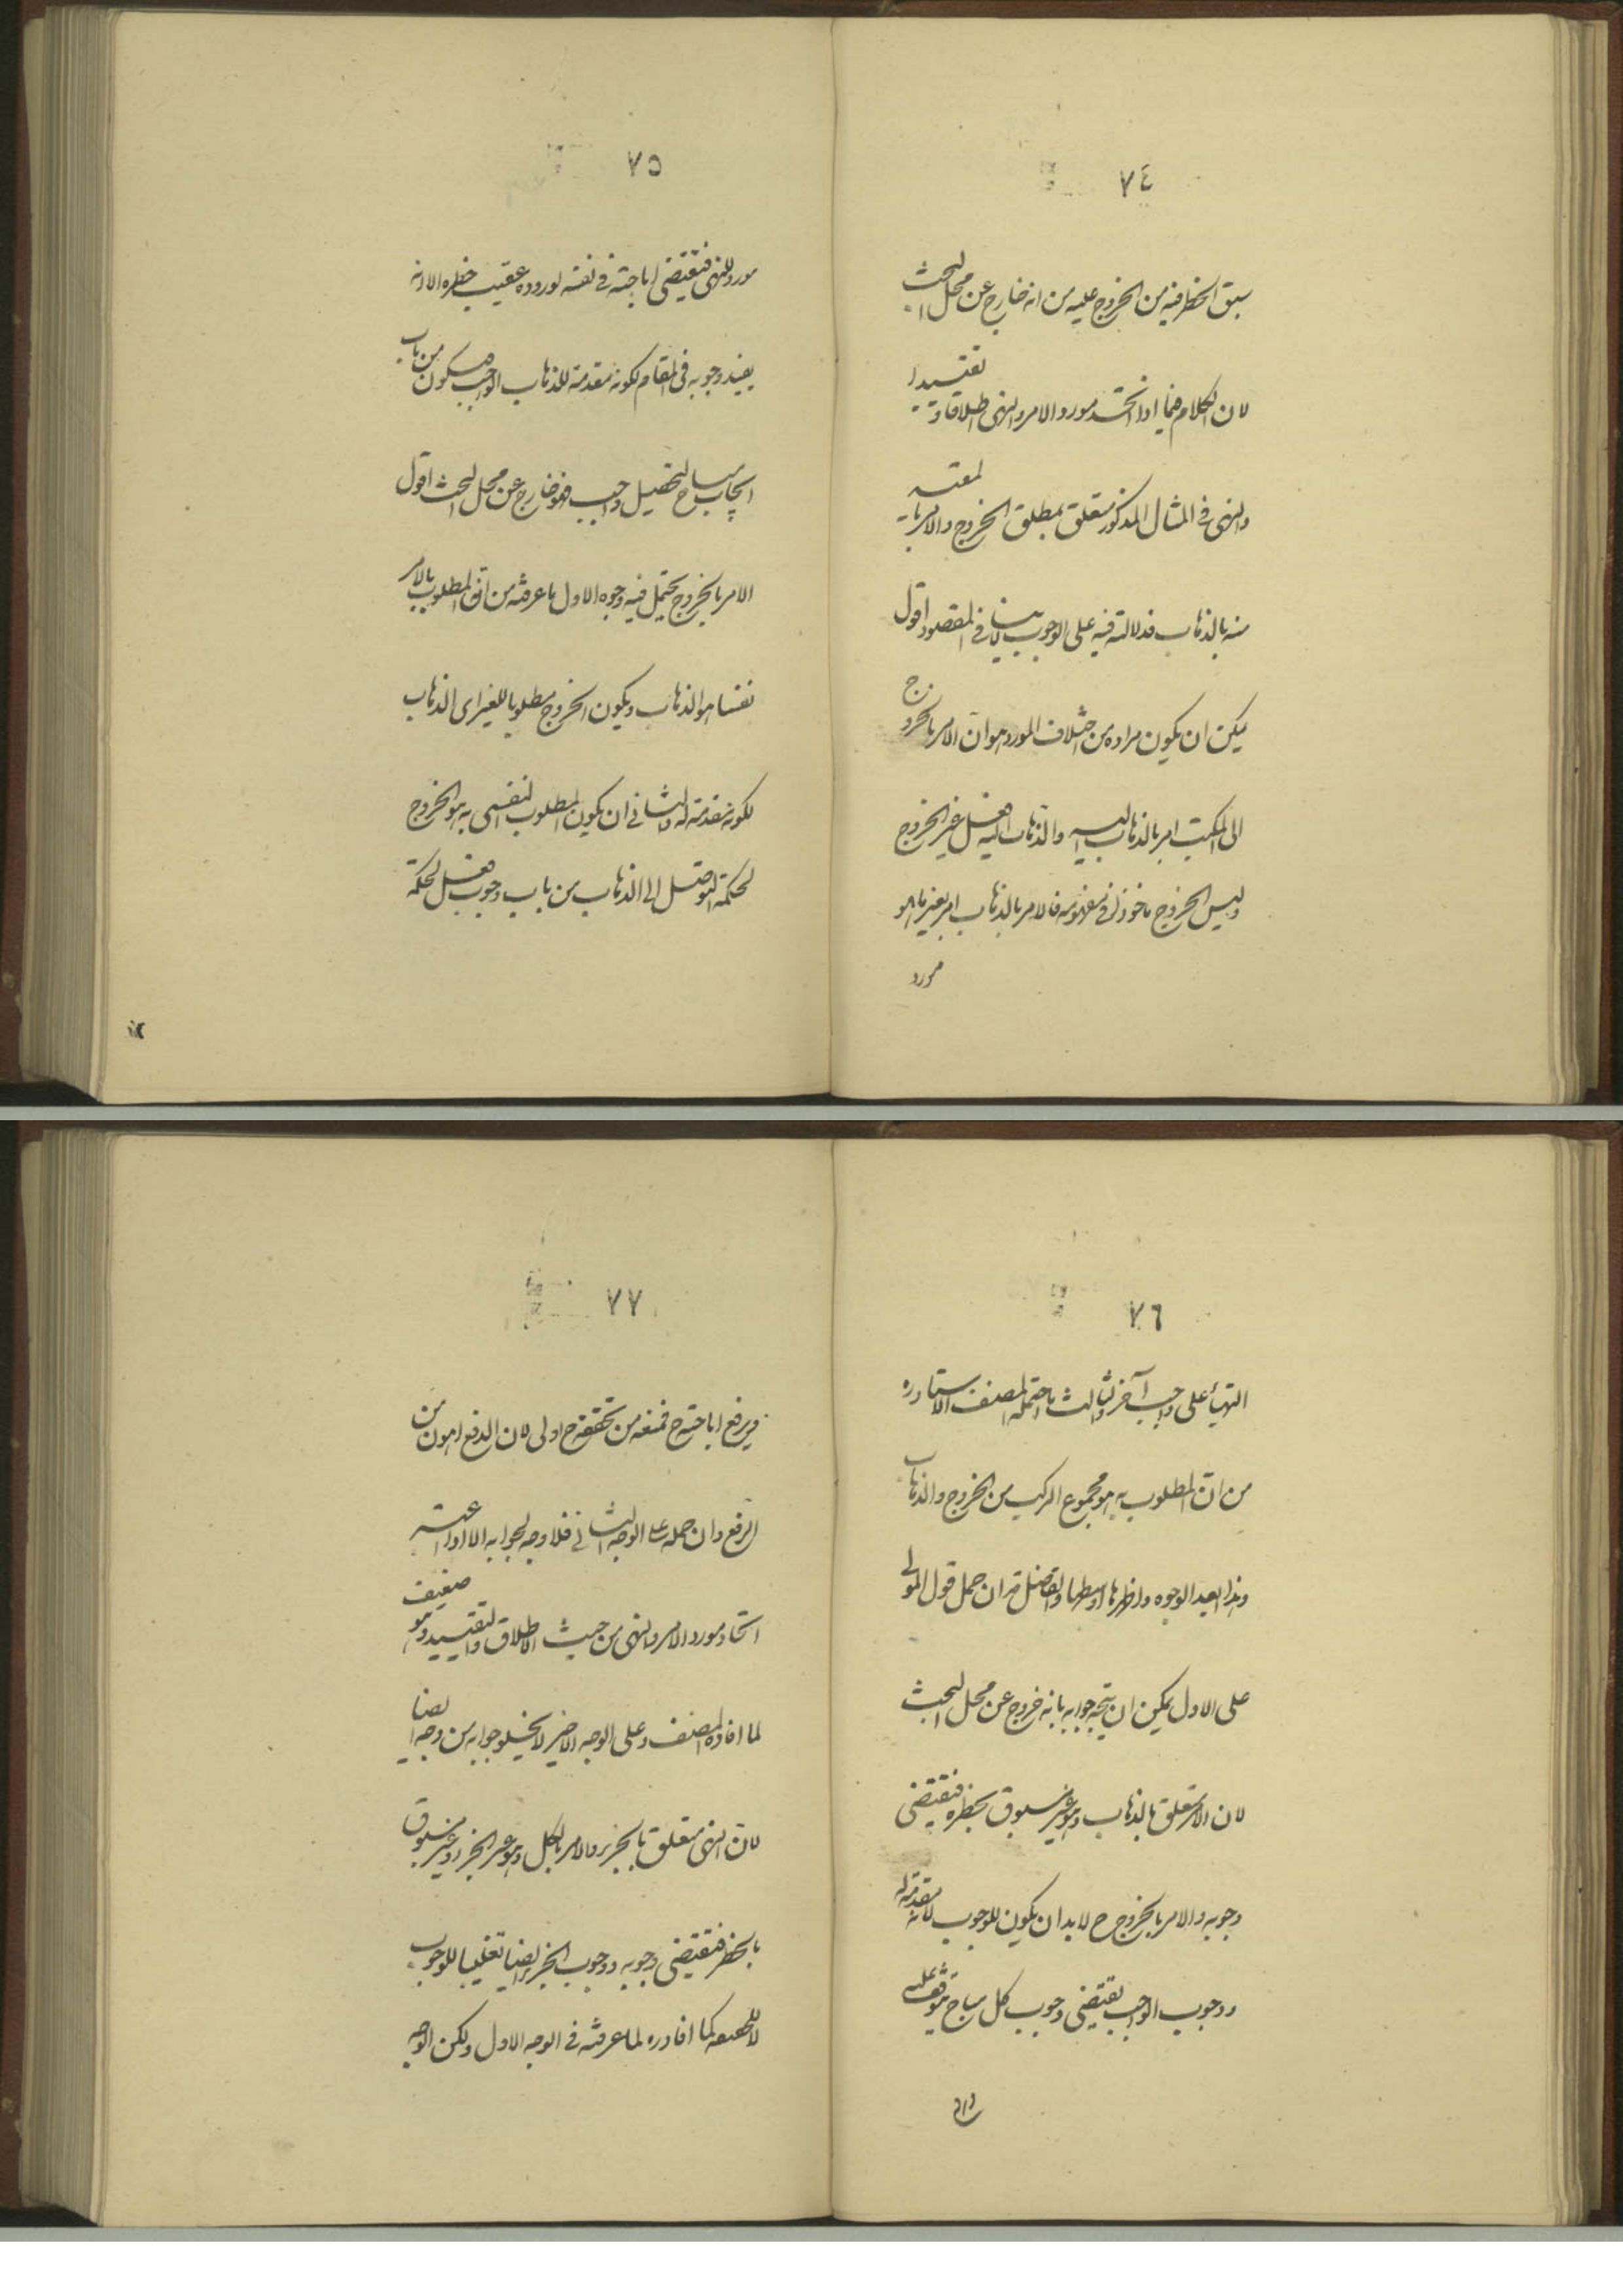 ٧٤
سبق الحظر فيه من الخروج عليه من انه خارج عن محل البحث
لان الكلام فيما اذا اتحد مورد الامر والنهى اطلاقا وتقييدا
والنهى في المثال المذكور متعلق بمطلق الخروج والامر
منه بالذهاب فدلالته فيه على الوجوب لا ينافي المقصود اقول
يمكن ان يكون مراده من اختلاف المورد هو ان الامر بالخروج
الى المكتب امر بالذهاب اليه والذهاب اليه فعل غير الخروج
وليس الخروج ماخوذا في مفهومه فالامر بالذهاب امر بغير ما هو
مورد
٧٥
مورد للنهى فيقتضى اباحته في نفسه لوروده عقيب حظره الا انه
يفيد وجوبه في المقام لكونه مقدمة للذهاب الواجب فيكون من باب
ايجاب مباح لتحصيل واجب فهو خارج عن محل البحث اقول
الامر بالخروج يحتمل فيه وجوه الاول ما عرفته من ان المطلوب بالامر
نفسا هو الذهاب ويكون الخروج مطلوبا للغير اى الذهاب
لكونه مقدمة له والثاني ان يكون المطلوب النفسى به هو الخروج
لحكمة التوصل الى الذهاب من باب وجوب فعل لحكمة
٧٦
التهيأ على واجب آخر والثالث ما احتمله المصنف الاستاد ره
من ان المطلوب به هو مجموع المركب من الخروج والذهاب
وهذا ابعد الوجوه واظهرها اوسطها والفاضل قد ان حمل قول المولى
على الاول يمكن ان يتجه جوابه بانه خروج عن محل البحث
لان الامر تعلق بالذهاب وهو غير مسبوق بحظره فيقتضى
وجوبه والامر بالخروج ح لابد ان يكون للوجوب لانه مقدمة له
ووجوب الواجب يقتضى وجوب كل مباح توقف عليه
٧٧
ويرفع اباحته ح فمنعه من تحققه ح اولى لان الدفع اهون من
الرفع وان حمله على الوجه الثاني فلا وجه لجوابه الا اذا اعتبر
اتحاد مورد الامر والنهى من حيث الاطلاق والتقييد وهو ضعيف
لما افاده المصنف وعلى الوجه الاخير لا يخلو جوابه من وجه ايضا
لان النهى متعلق بالجزء والامر بالكل وهو غير الجزء وغير مسبوق
بالحظر فيقتضى وجوبه ووجوب الجزء ايضا تغليبا للوجوب
كما افاد ره لما عرفته في الوجه الاول ولكن الوجه